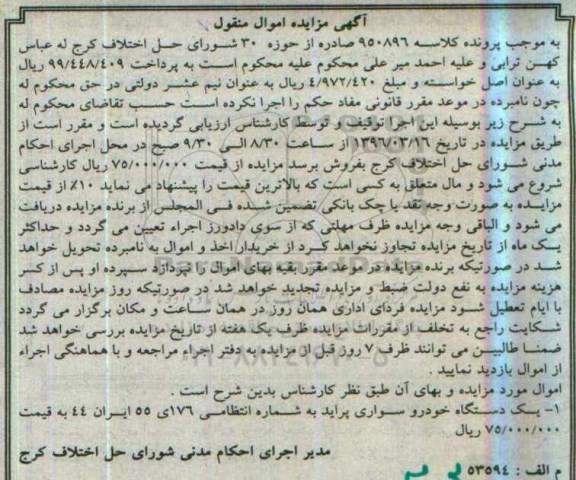 آگهی مزایده اموال منقول
به موجب پرونده کلاسه ۹۵۰۸۹۶ صادره از حوزه ۳۰ شورای حل اختلاف کرج له عباس
کهن ترابی و علیه احمد میر علی محکوم علیه محکوم است به پرداخت ۹۹/۴۴۸/۴۰۹ ریال
به عنوان اصل خواسته و مبلغ ۴/۹۷۲/۴۲۰ ریال به عنوان نیم عشر دولتی در حق محکوم له
چون نامبرده در موعد مقرر قانونی مفاد حکم را اجرا نکرده است حسب تقاضای محکوم له
به شرح زیر بوسیله این اجرا توقیف و توسط کارشناس ارزیابی گردیده است و مقرر است از
طریق مزایده در تاریخ ۱۳۹۶/۰۳/۱۶ از ساعت ۸/۳۰ الی ۹/۳۰ صبح در محل اجرای احکام
مدنی شورای حل اختلاف کرج بفروش برسد مزایده از قیمت ۷۵/۰۰۰/۰۰۰ ریال کارشناسی
شروع می شود و مال متعلق به کسی است که بالاترین قیمت را پیشنهاد می نماید ۱۰٪ از قیمت
مزایده به صورت وجه نقد یا چک بانکی تضمین شده فی المجلس از برنده مزایده دریافت
می شود و الباقی وجه مزایده ظرف مهلتی که از سوی دادورز اجراء تعیین می گردد و حداکثر
یک ماه از تاریخ مزایده تجاوز نخواهد کرد از خریدار اخذ و اموال به نامبرده تحویل خواهد
شد در صورتیکه برنده مزایده در موعد مقرر بقیه بهای اموال را نپردازد سپرده او پس از کسر
هزینه مزایده به نفع دولت ضبط و مزایده تجدید خواهد شد در صورتیکه روز مزایده مصادف
با ایام تعطیل شود مزایده فردای اداری همان روز در همان ساعت و مکان برگزار می گردد
شکایت راجع به تخلف از مقررات مزایده ظرف یک هفته از تاریخ مزایده بررسی خواهد شد
ضمنا طالبین می توانند ظرف ۷ روز قبل از مزایده به دفتر اجراء مراجعه و با هماهنگی اجراء
از اموال بازدید نمایید .
اموال مورد مزایده و بهای آن طبق نظر کارشناس بدین شرح است .
۱- یک دستگاه خودرو سواری پراید به شماره انتظامی ۱۷۶ی ۵۵ ایران ۴۴ به قیمت
۷۵/۰۰۰/۰۰۰ ریال
مدیر اجرای احکام مدنی شورای حل اختلاف کرج
م الف : ۵۳۵۹۴